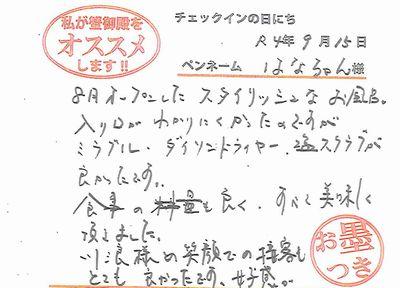 私が蟹御殿を
オススメ
します!!
チェックインの日にち
R4年9月15日
ペンネーム はなちゃん様
8月オープンした スタイリッシュな お風呂。
入り口が わかりにくかったのですが
ミラブル・ダイソンドライヤー・塩スクラブが
良かったです。
食事の 量も良く、すべて美味しく
頂きました。
川浪様の笑顔での接客も
とても良かったです。
お墨
つき